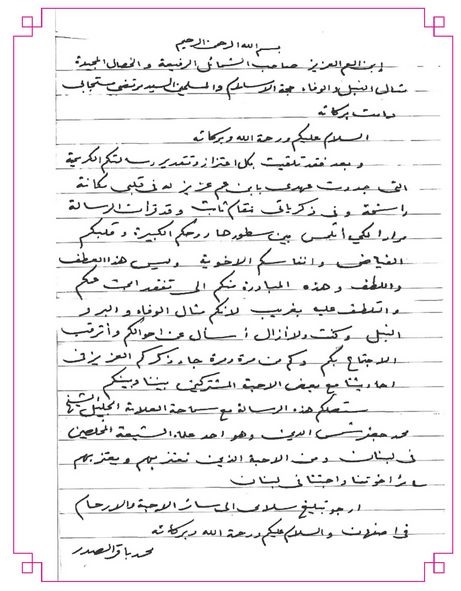 بسم الله الرحمن الرحيم
ابن العم العزيز صاحب الشمائل الرفيعة والخصال المجيدة
مثال النبل والوفاء حجة الاسلام والمسلمين السيد مرتضى مستجابي
دامت بركاته
السلام عليكم ورحمة الله وبركاته
وبعد فقد تلقيت بكل اعتزاز وتقدير رسالتكم الكريمة
التي جددت عهدي بابن عم عزيز له في قلبي مكانة
راسخة وفي ذكرياتي مقام ثابت وقد قرأت الرسالة
مرارا لكي أتلمس بين سطورها روحكم الكبيرة وقلبكم
الفياض وانفاسكم الاخوية وليس هذا العطف
واللطف وهذه المبادرة منكم الى تفقد ابن عمكم
والتلطف عليه بغريب لانكم مثال الوفاء والبر و
النبل وكنت ولا أزال أسأل عن احوالكم وأترقب
الاجتماع بكم وكم من مرة ومرة جاء ذكركم العزيز في
احاديثنا مع بعض الاحبة المشتركين بيننا وبينكم
ستصلكم هذه الرسالة مع سماحة العلامة الجليل الشيخ
محمد جعفر شمس الدين وهو احد علماء الشيعة المخلصين
في لبنان ومن الاحبة الذين نعتز بهم ويعتز بهم
سائر اخوتنا واحبتنا في لبنان
ارجو تبليغ سلامي الى سائر الاحبة والارحام
في اصفهان والسلام عليكم ورحمة الله وبركاته
محمد باقر الصدر